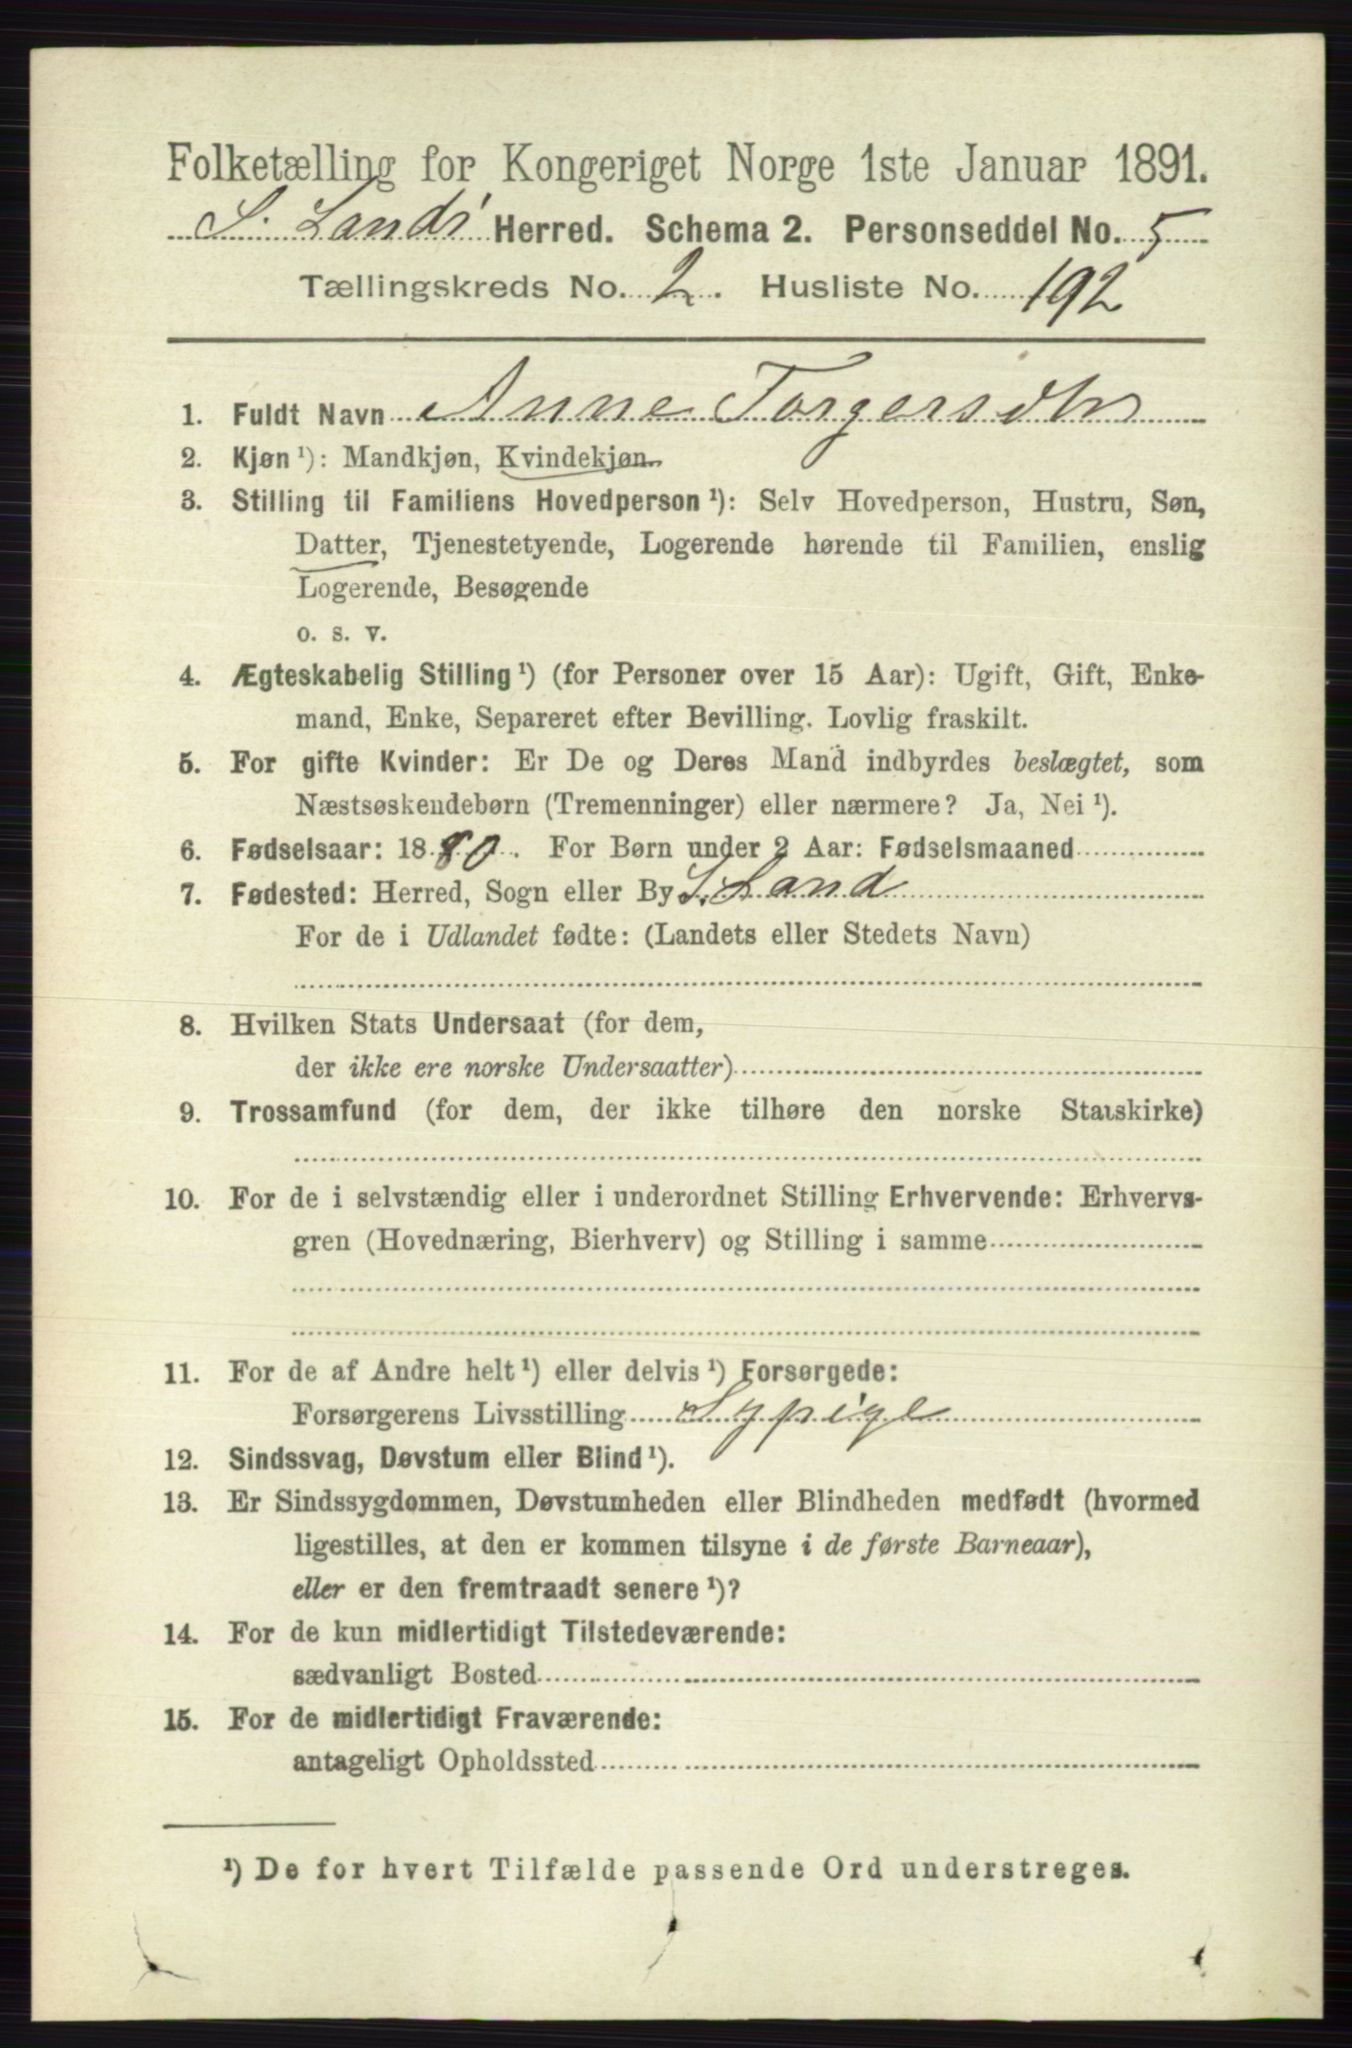 Folketælling for Kongeriget Norge 1ste Januar 1891.
S. Lands Herred. Schema 2. Personseddel No. 5
Tællingskreds No. 2. Husliste No. 192
1. Fuldt Navn Anne Torgersdtr
2. Kjøn ¹): Mandkjøn, Kvindekjøn.
3. Stilling til Familiens Hovedperson ¹): Selv Hovedperson, Hustru, Søn,
Datter, Tjenestetyende, Logerende hørende til Familien, enslig
Logerende, Besøgende
o. s. v.
4. Ægteskabelig Stilling ¹) (for Personer over 15 Aar): Ugift, Gift, Enke-
mand, Enke, Separeret efter Bevilling. Lovlig fraskilt.
5. For gifte Kvinder: Er De og Deres Mand indbyrdes beslægtet, som
Næstsøskendebørn (Tremenninger) eller nærmere? Ja, Nei ¹).
6. Fødselsaar: 1880. For Børn under 2 Aar: Fødselsmaaned
7. Fødested: Herred, Sogn eller By S. Land
For de i Udlandet fødte: (Landets eller Stedets Navn)
8. Hvilken Stats Undersaat (for dem,
der ikke ere norske Undersaatter)
9. Trossamfund (for dem, der ikke tilhøre den norske Statskirke)
10. For de i selvstændig eller i underordnet Stilling Erhvervende: Erhvervs-
gren (Hovednæring, Bierhverv) og Stilling i samme
11. For de af Andre helt ¹) eller delvis ¹) Forsørgede:
Forsørgerens Livsstilling Sypige
12. Sindssvag, Døvstum eller Blind ¹).
13. Er Sindssygdommen, Døvstumheden eller Blindheden medfødt (hvormed
ligestilles, at den er kommen tilsyne i de første Barneaar),
eller er den fremtraadt senere ¹)?
14. For de kun midlertidigt Tilstedeværende:
sædvanligt Bosted
15. For de midlertidigt Fraværende:
antageligt Opholdssted
¹) De for hvert Tilfælde passende Ord understreges.